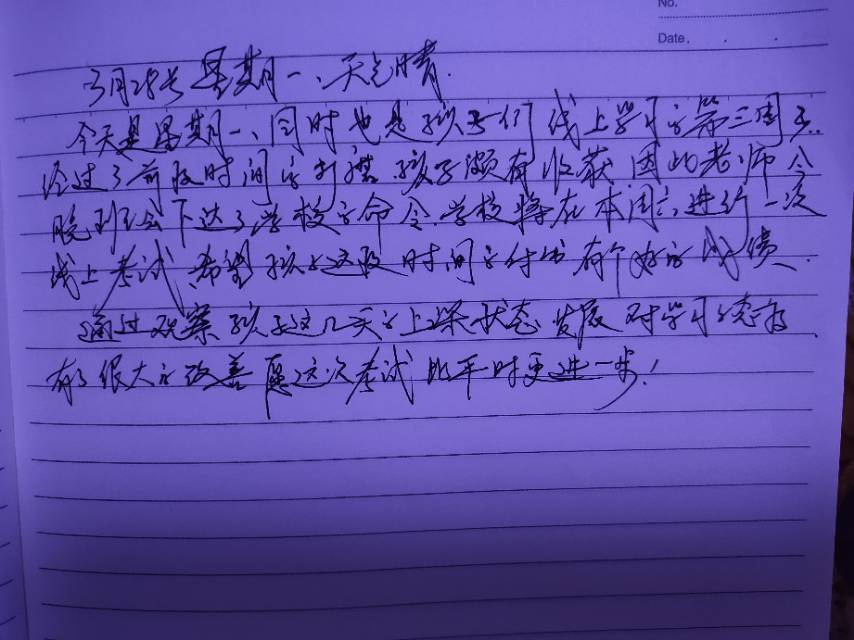 No.
Date.
3月28号 星期一、天气晴.
今天是星期一、同时也是孩子们线上学习的第三周了.
经过了前段时间的打磨 孩子颇有收获 因此老师今
晚班会下达了学校的命令.学校将在本周六进行一次
线上考试,希望孩子这段时间的付出有个好的成绩.
通过观察孩子这几天的上课状态 发展对学习的态度
有了很大的改善 愿这次考试比平时更进一步!